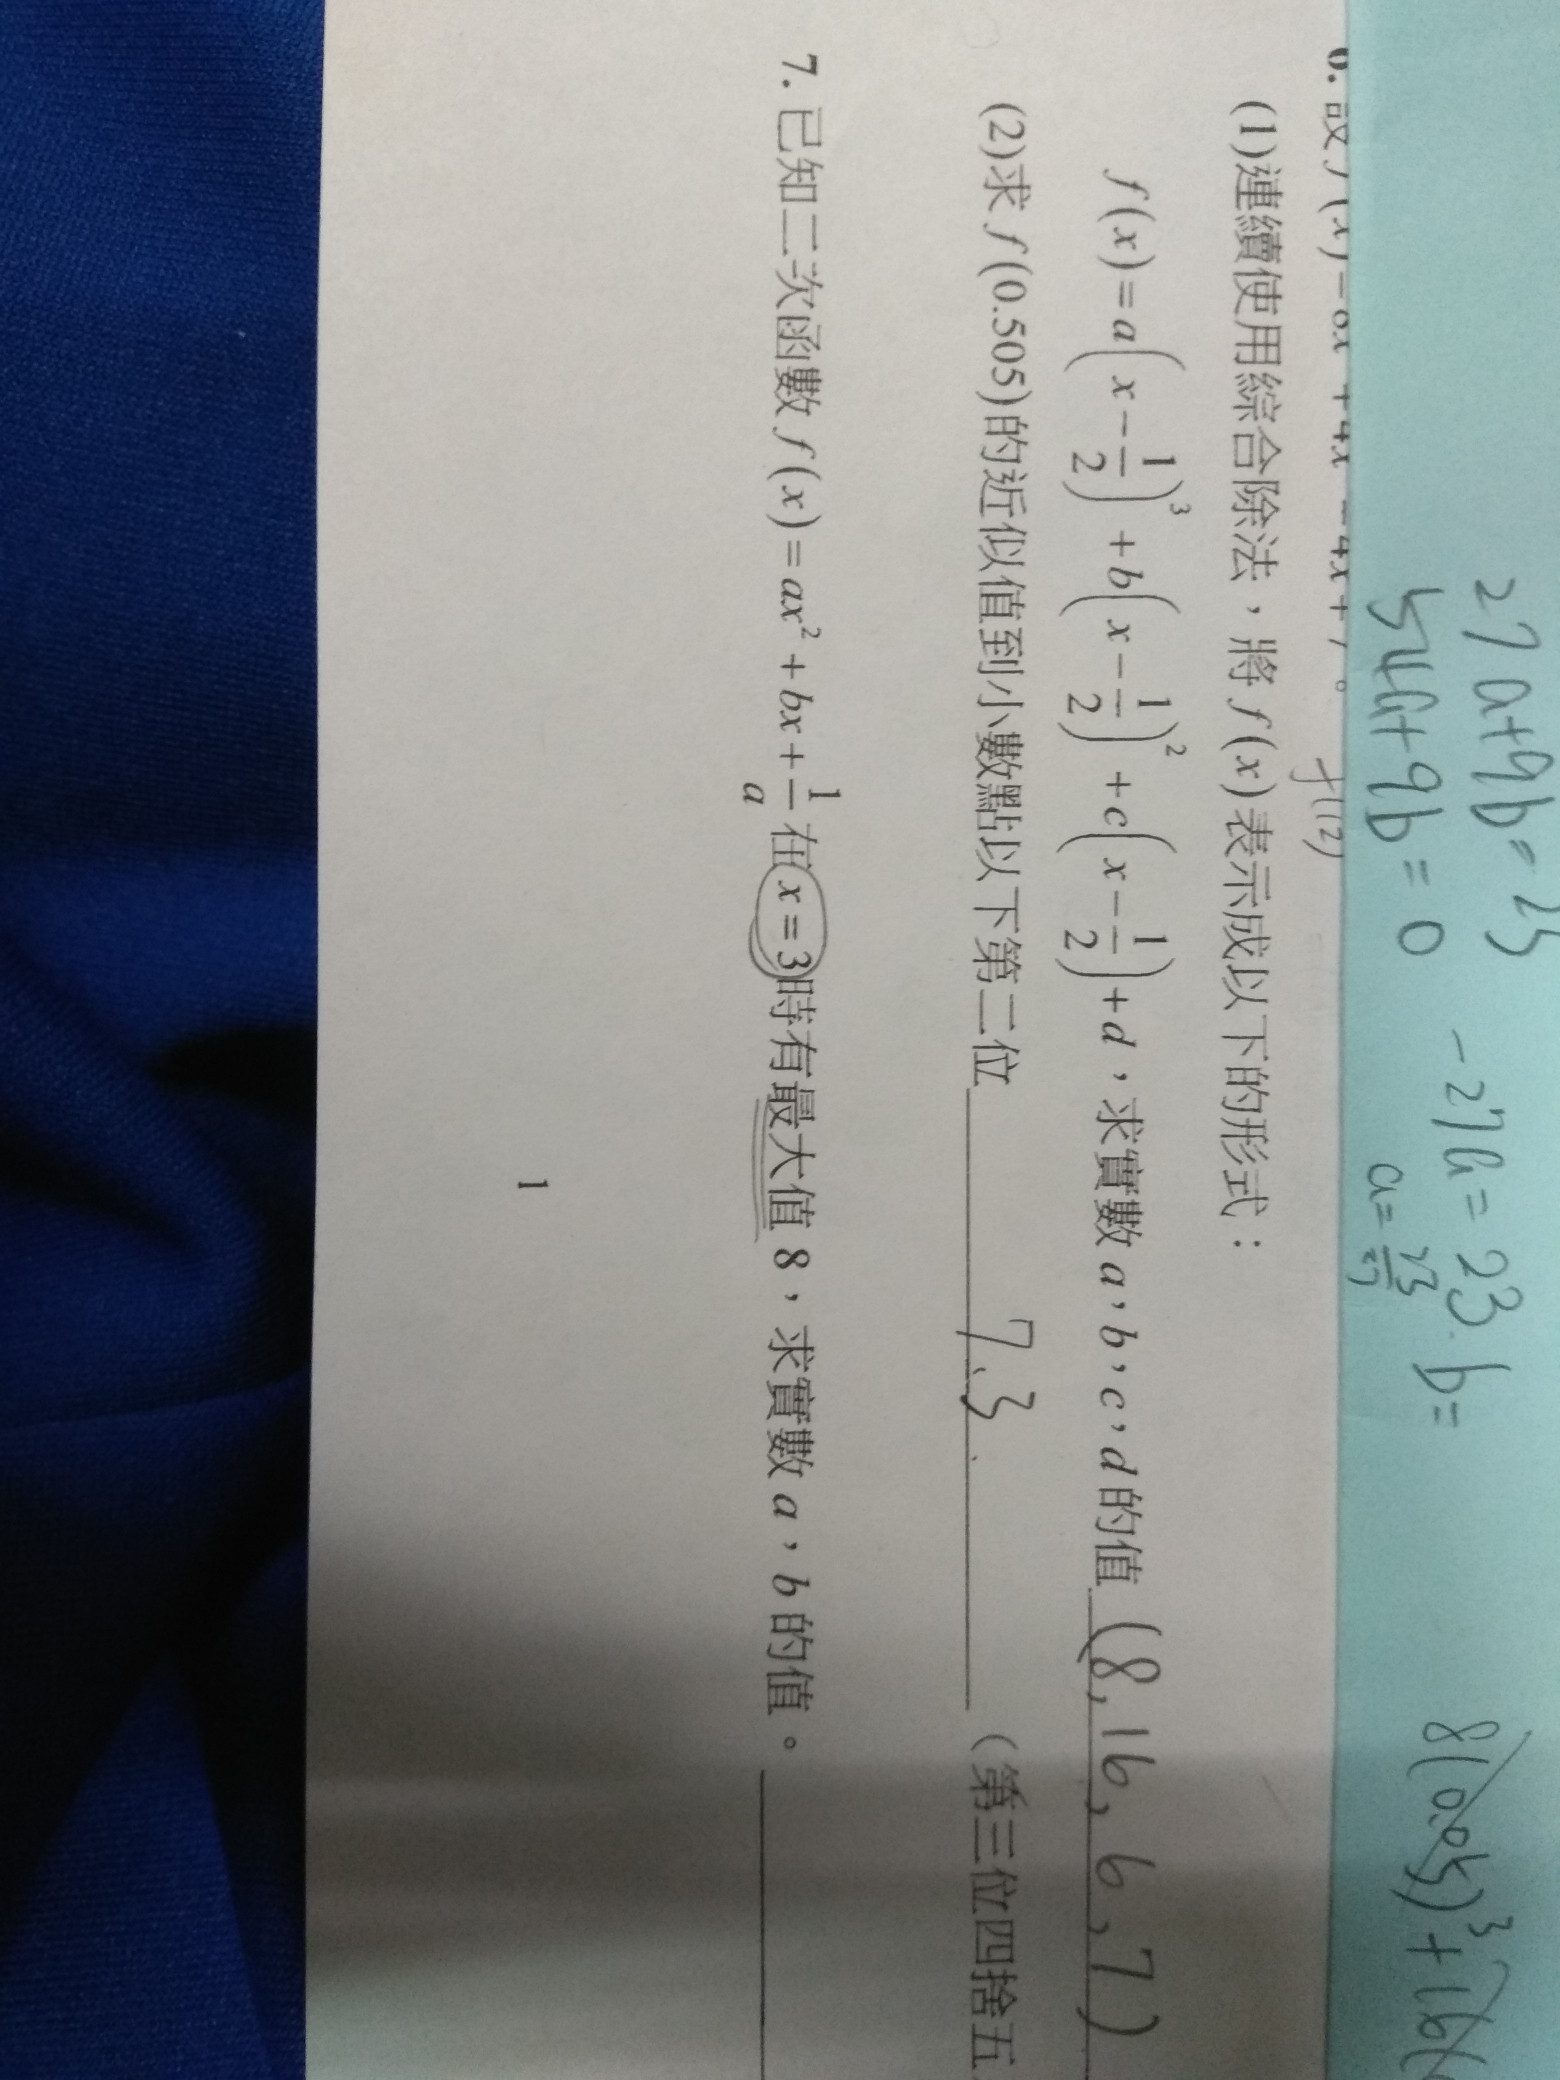 27a+9b=23
54a+9b=0
-27a=23. b=
a=23/27
8(0.05)³+16(
6. 設 f(x)=8x +4x -4x+7。
f(12)
(1)連續使用綜合除法，將 f(x)表示成以下的形式：
f(x)=a(x-1/2)³+b(x-1/2)²+c(x-1/2)+d，求實數 a，b，c，d 的值 (8,16,6,7)
(2)求 f(0.505)的近似值到小數點以下第二位 7.3. (第三位四捨五
7. 已知二次函數 f(x)=ax²+bx+1/a 在 x=3 時有最大值 8，求實數 a，b 的值。
1